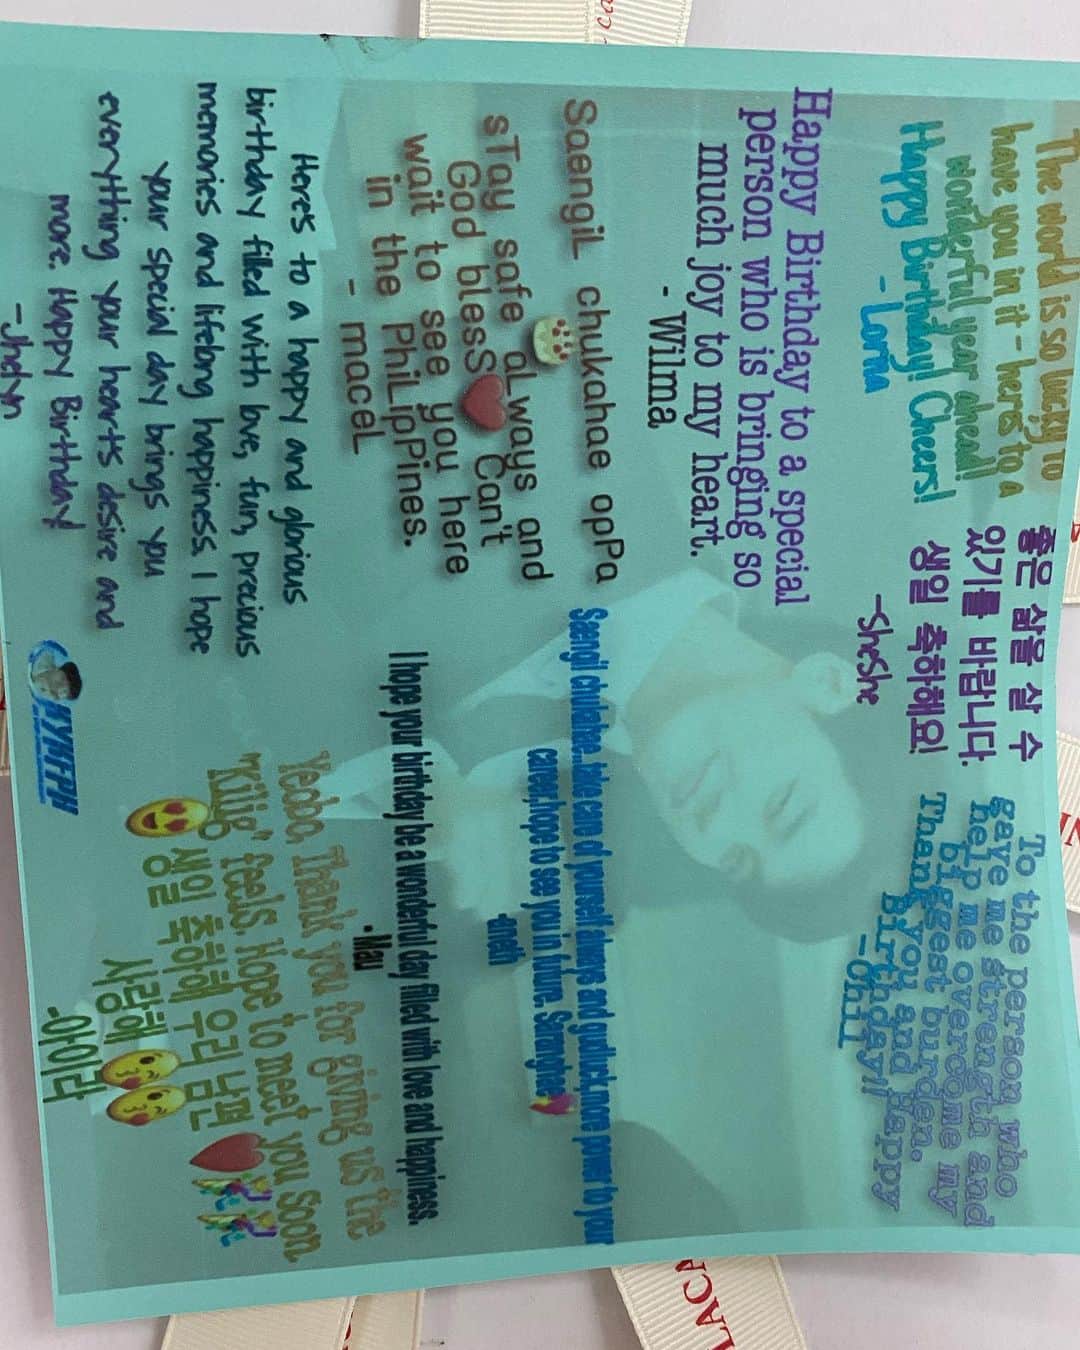 The world is so lucky to
have you in it - here's to a
wonderful year ahead!
Happy Birthday! Cheers!
- Lorna
좋은 삶을 살 수
있기를 바랍니다.
생일 축하해요!
-SheShe
To the person who
gave me strength and
help me overcome my
biggest burden.
Thank you and Happy
Birthday!!
-Chill
Happy Birthday to a special
person who is bringing so
much joy to my heart.
- Wilma
SaengiL chukahae opPa
sTay safe aLways and
God blesS ❤️ Can't
wait to see you here
in the PhiLipPines.
- maceL
Saengil chukahae...take care of yourself always and goduck,more power to your
career,hope to see you in future. Saranghae
-endah
I hope your birthday be a wonderful day filled with love and happiness.
- May
Here's to a happy and glorious
birthday filled with love, fun, precious
memories and lifelong happiness. I hope
your special day brings you
everything your heart's desire and
more. Happy Birthday
-Jhelyn
Yeoboo, Thank you for giving us the
"Kilig" feels. Hope to meet you Soon
생일 축하해 우리 남편 ❤️
😍 응
사랑해 😘😘
-아이라
KYHFPH
LACA